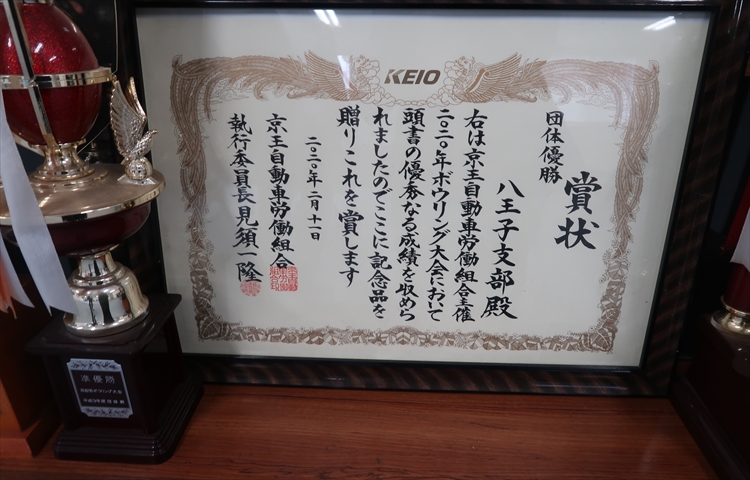 KEIO
賞状
団体優勝
八王子支部殿
右は京王自動車労働組合主催
二〇二〇年ボウリング大会において
頭書の優秀なる成績を収めら
れましたのでここに記念品を
贈りこれを賞します
二〇二〇年二月十一日
京王自動車労働組合
執行委員長見須一隆
準優勝